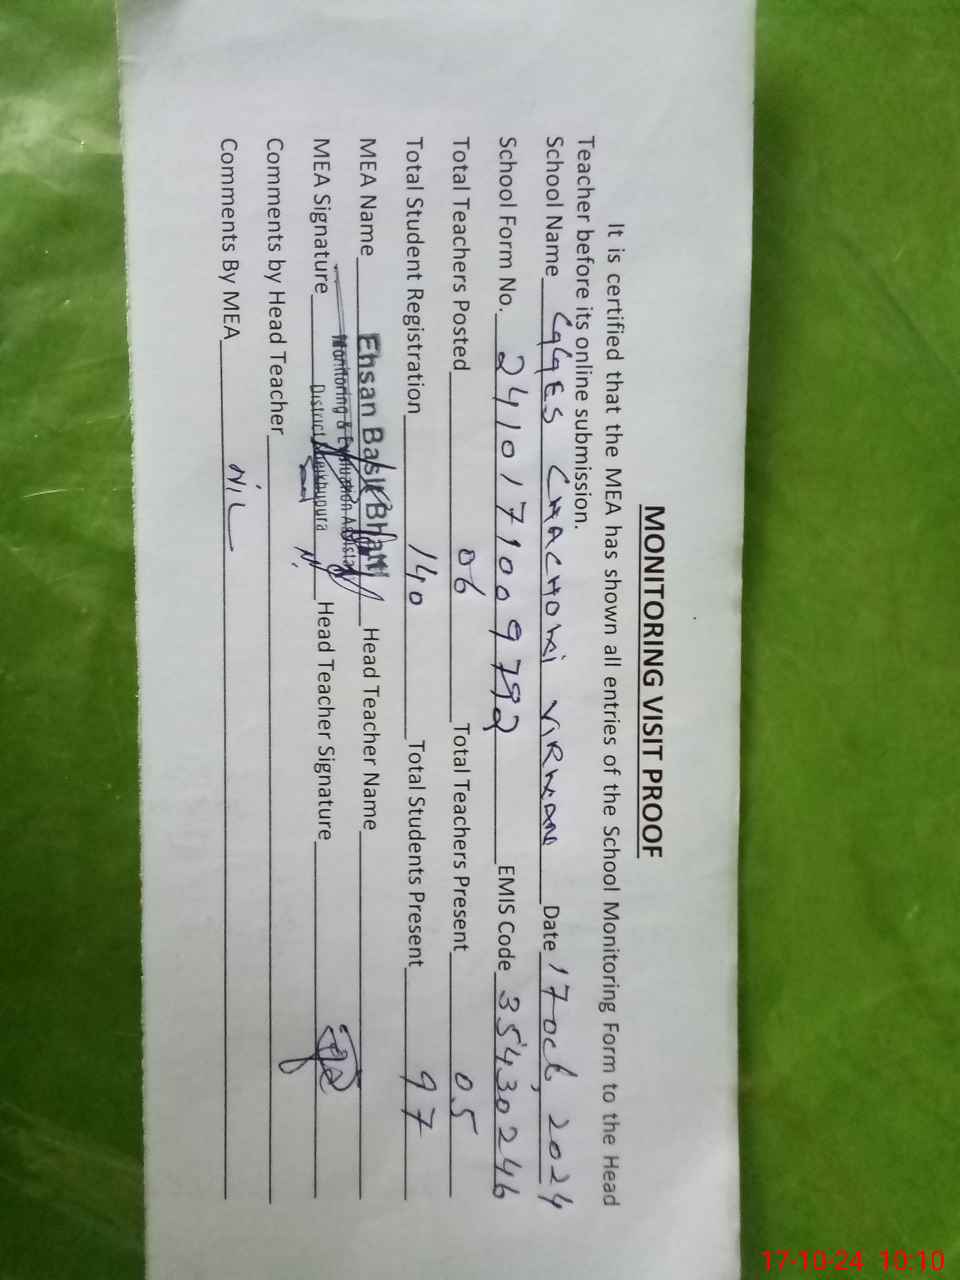 MONITORING VISIT PROOF
It is certified that the MEA has shown all entries of the School Monitoring Form to the Head
Teacher before its online submission.
School Name GGES Date 17 Oct, 2024
School Form No. 2410171009792 EMIS Code 35430246
Total Teachers Posted 06 Total Teachers Present 05
Total Student Registration 140 Total Students Present 97
MEA Name Ehsan Head Teacher Name
Monitoring & Evaluation
MEA Signature District Sheikhupura Head Teacher Signature
Comments by Head Teacher
Comments By MEA NiL
17-10-24 10:10